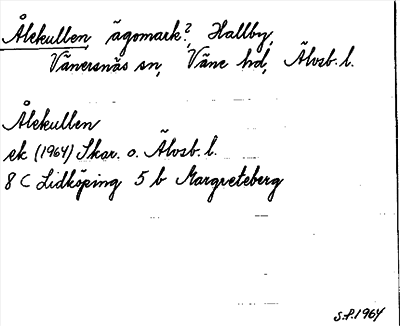 Ålekullen, ägomark?, Hallby,
Vänersnäs sn, Väne hd, Älvsb. l.
Ålekullen
ek (1964) Skar. o. Älvsb. l.
8 C Lidköping 5 b Margreteberg
S.P. 1964